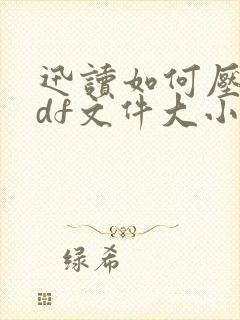 迅讀如何壓
df文件大小
绿希